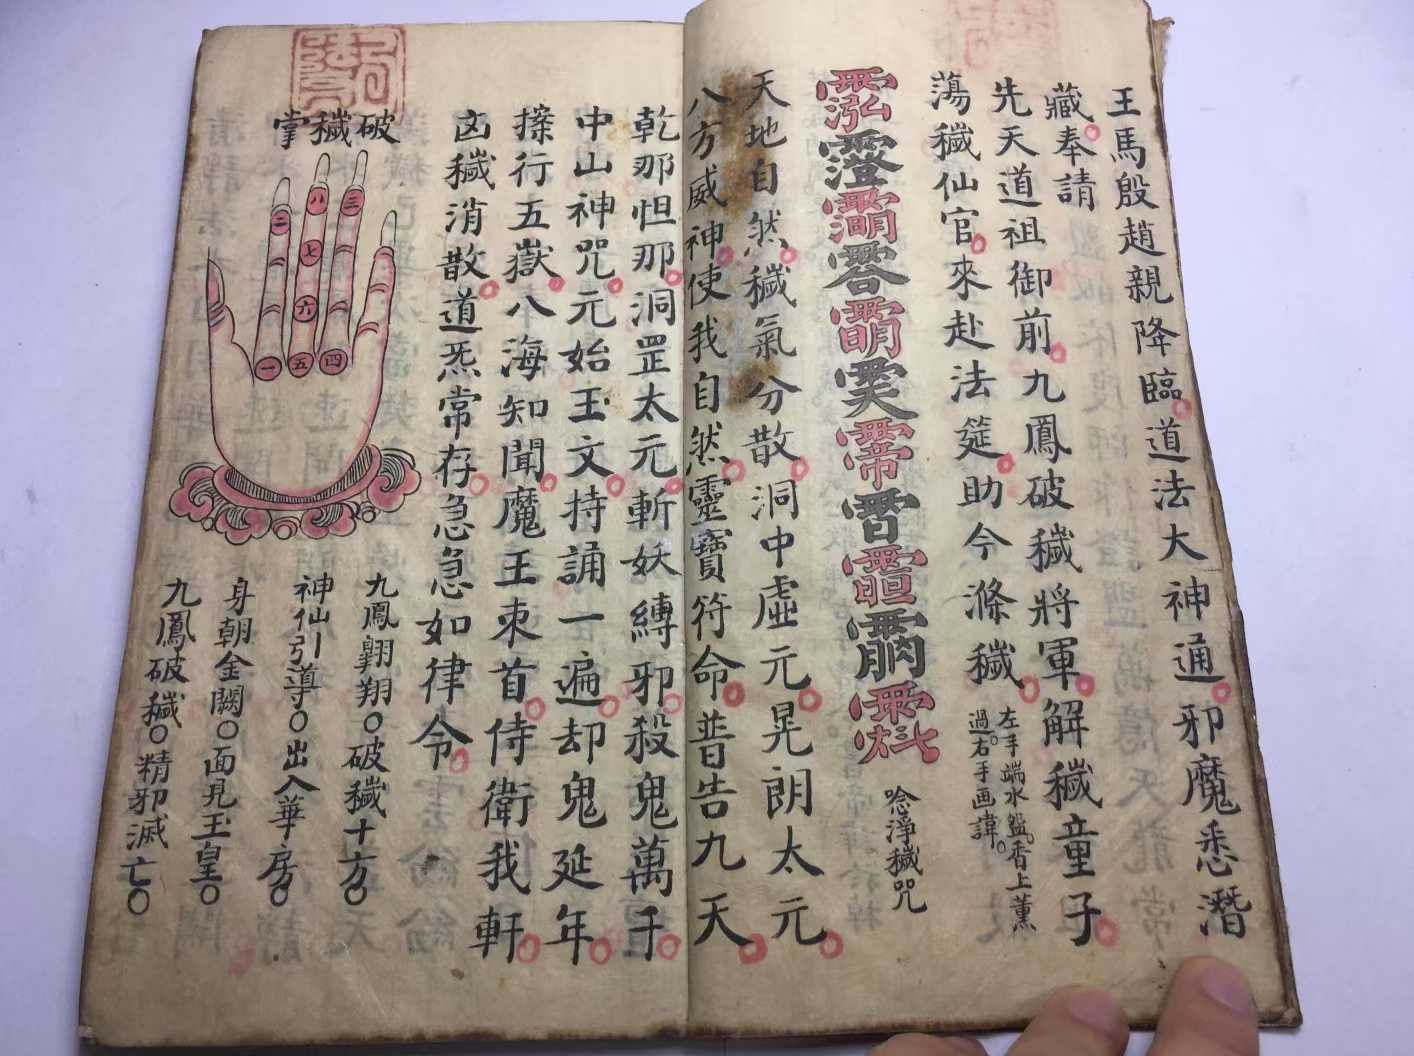 王馬殷趙親降臨。道法大神通。邪魔悉潛
藏。奉請
先天道祖御前。九鳳破穢將軍。解穢童子。
蕩穢仙官。來赴法筵。助令滌穢。
左手端水盤。香上薰
過。右手画諱。
唸淨穢咒
天地自然。穢氣分散。洞中虛元。晃朗太元。
八方威神。使我自然。靈寶符命。普告九天。
乾那怛那。洞罡太元。斬妖縛邪。殺鬼萬千。
中山神咒。元始玉文。持誦一遍。却鬼延年。
行五嶽。八海知聞。魔王束首。侍衛我軒。
凶穢消散。道炁常存。急急如律令。
破穢掌
三
八
二
七
六
四
五
一
九鳳翺翔。破穢十方。
神仙引導。出入華房。
身朝金闕。面見玉皇。
九鳳破穢。精邪滅亡。